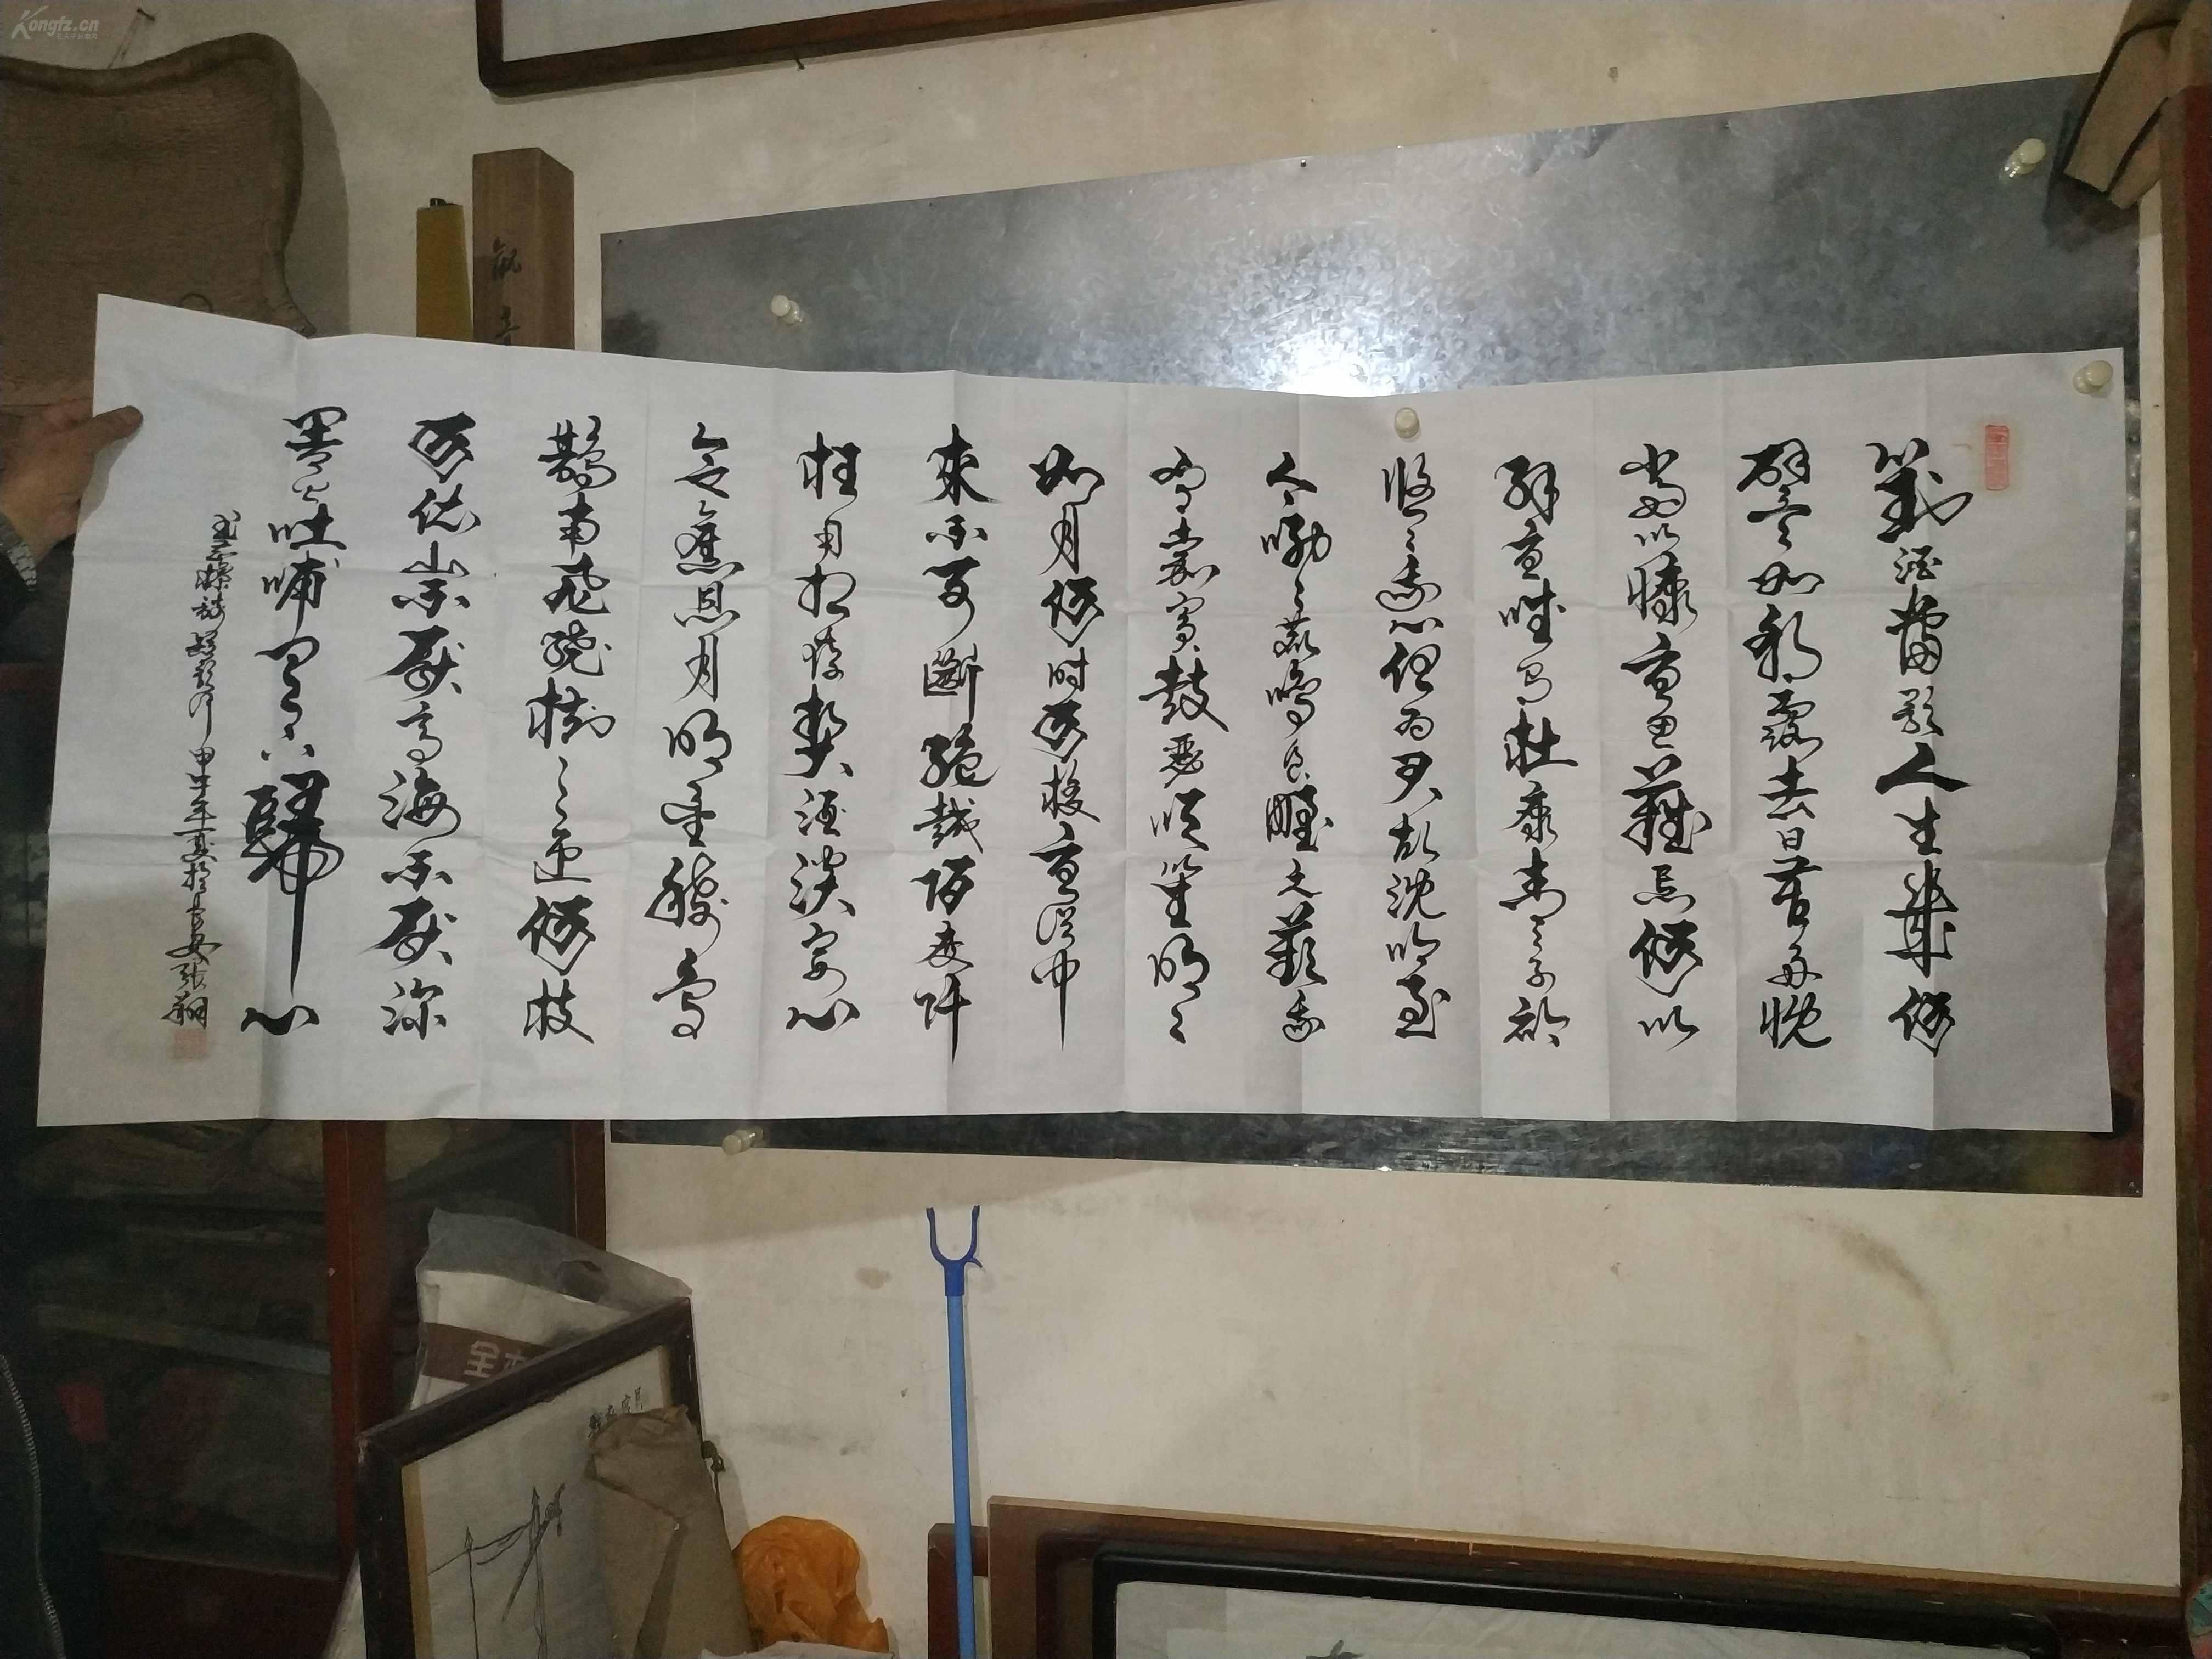 對酒當歌人生幾何
譬如朝露去日苦多慨
當以慷憂思難忘何以
解憂唯有杜康青々子衿
悠々我心但為君故沈吟至
今呦々鹿鳴食野之苹我
有嘉賓鼓瑟吹笙明々
如月何時可掇憂從中
來不可斷絕越陌度阡
枉用相存契闊談宴心
念舊恩月明星稀烏
鵲南飛繞樹三匝何枝
可依山不厭高海不厭深
周公吐哺天下歸心
曹操詩短歌行甲午年夏於長安張翔
Kongfz.cn